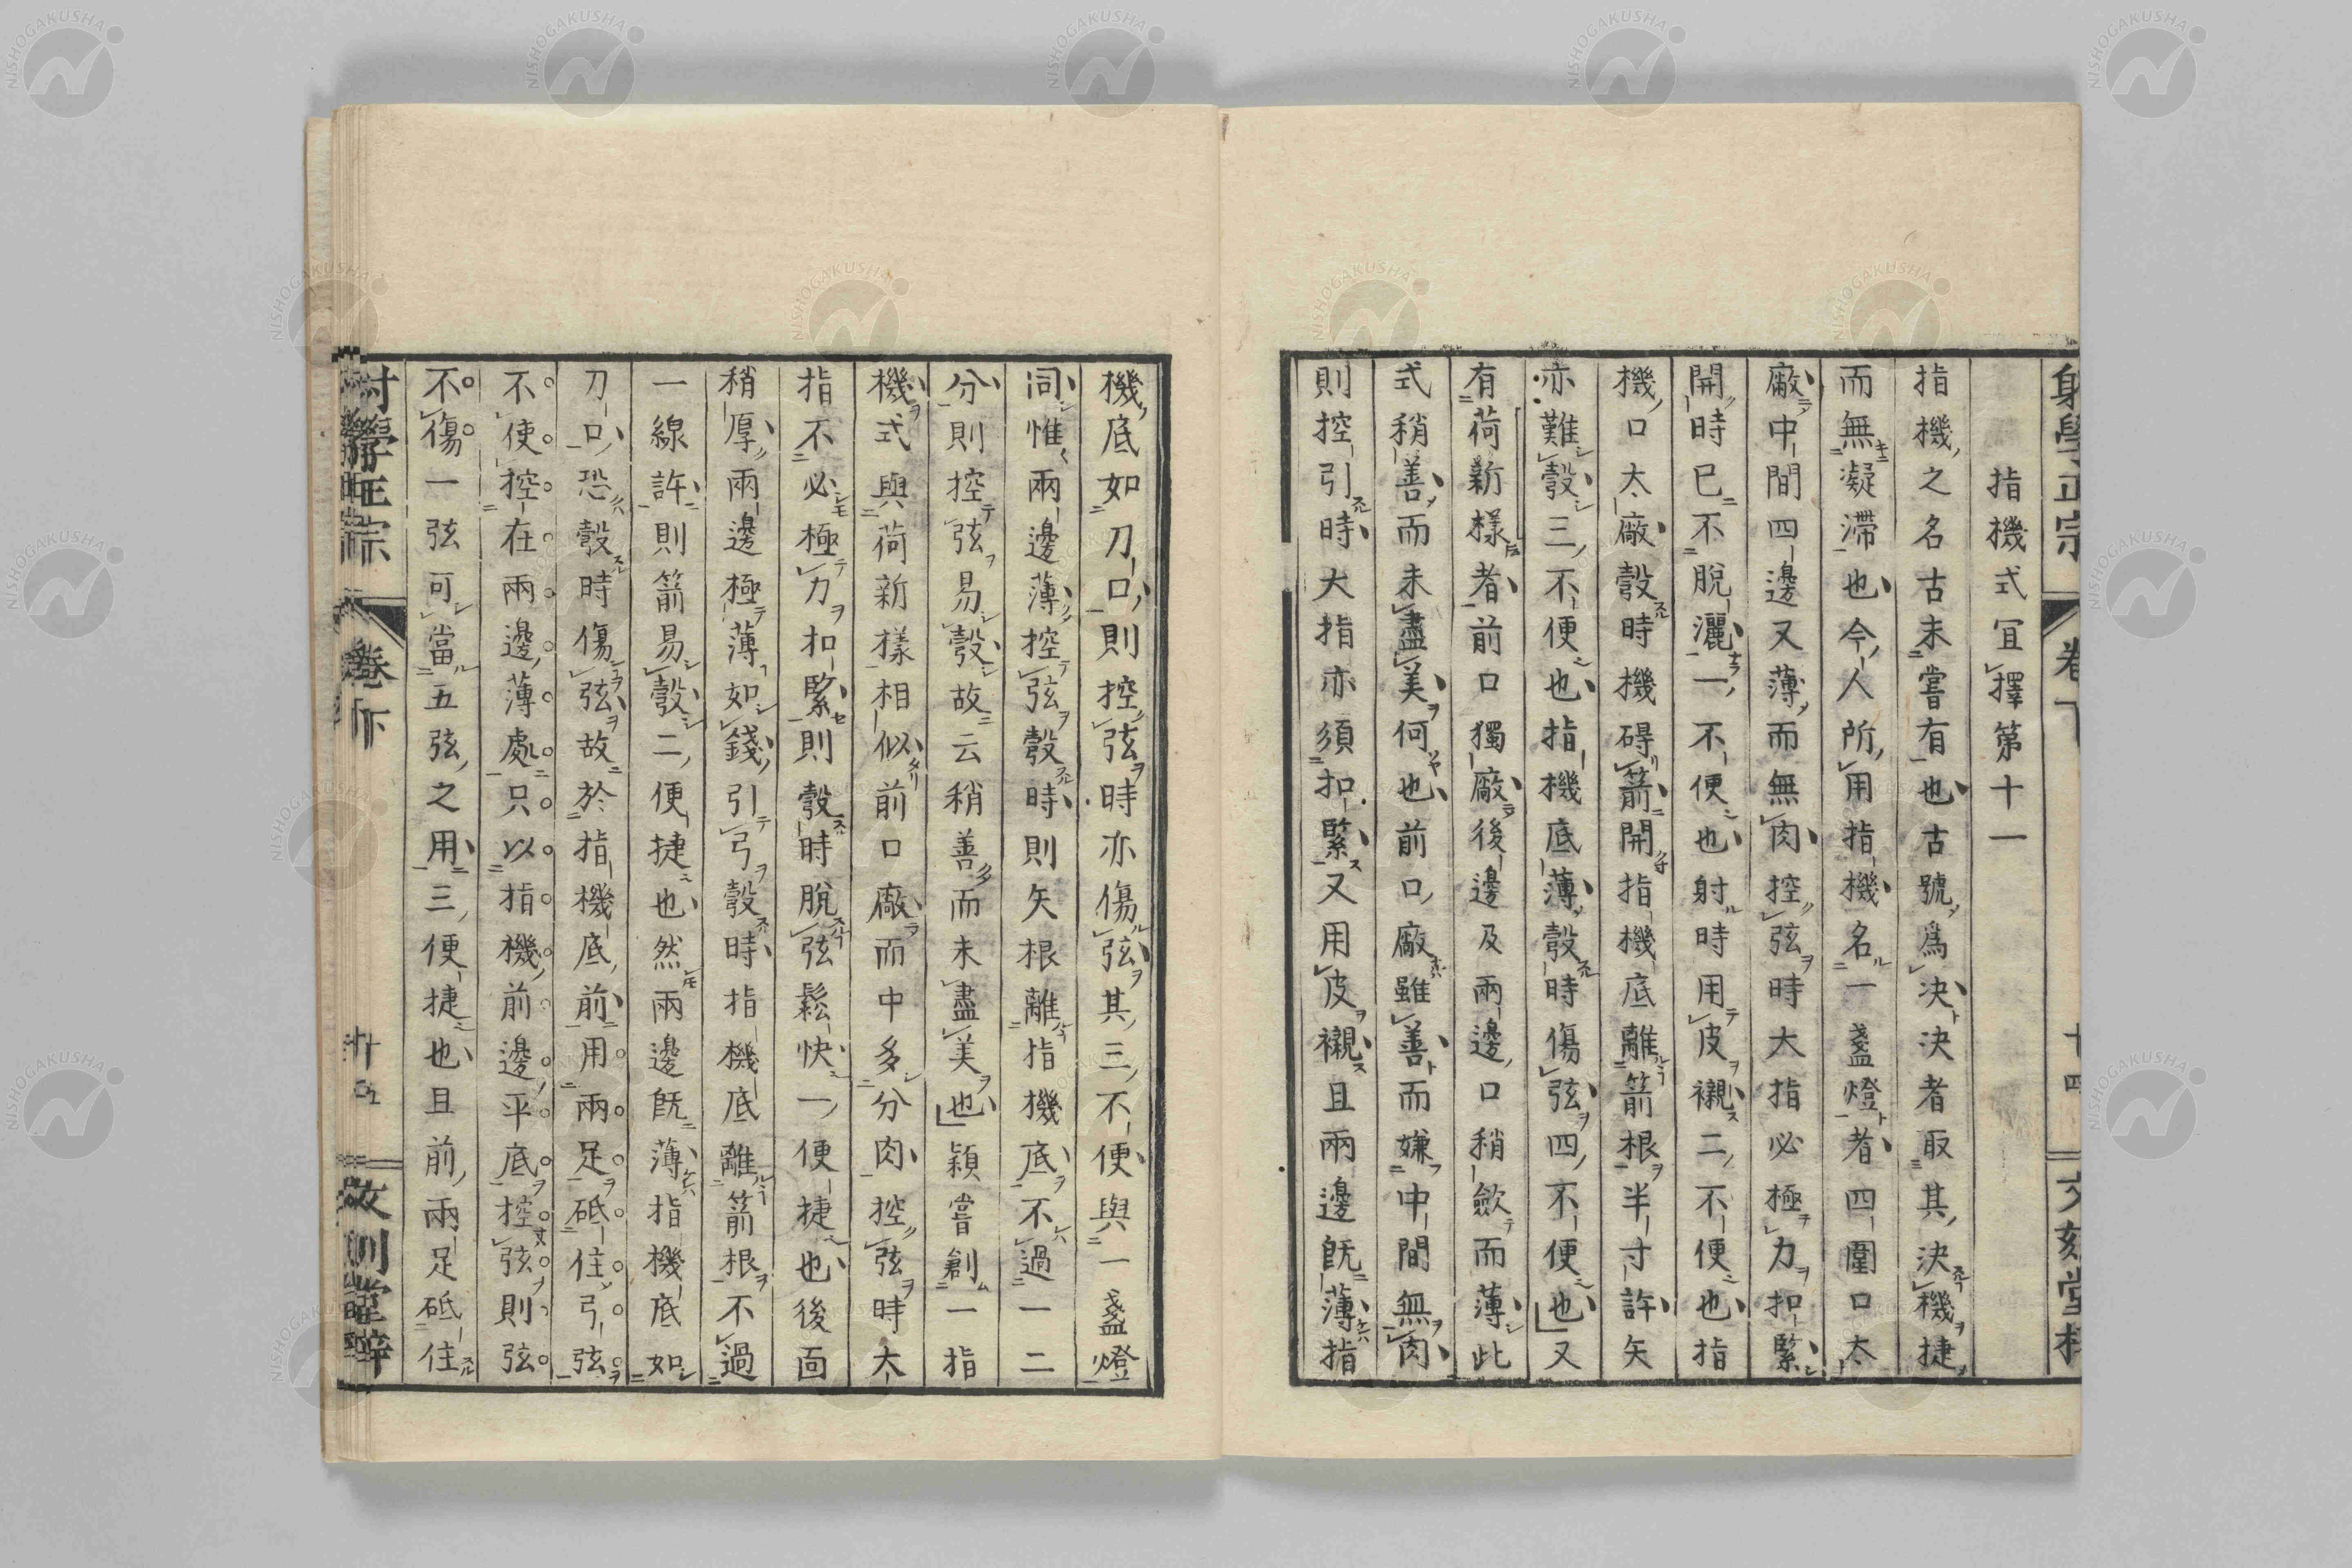 指機式宜擇第十一
指機之名古未嘗有也古號爲決決者取其決機捷
而無凝滯也今人所用指機名一盞燈者四圍口太
廠中間四邊又薄而無肉控弦時大指必極力扣緊
開時已不脫灑一不便也射時用皮襯二不便也指
機口太廠彀時機碍箭開指機底離箭根半寸許矢
亦難彀三不便也指機底薄彀時傷弦四不便也又
有荷新樣者前口獨廠後邊及兩邊口稍歛而薄此
式稍善而未盡美何也前口廠雖善而嫌中間無肉
則控引時大指亦須扣緊又用皮襯且兩邊既薄指
機底如刀口則控弦時亦傷弦其三不便與一盞燈
同惟兩邊薄控弦彀時則矢根離指機底不過一二
分則控弦易彀故云稍善而未盡美也穎嘗創一指
機式與荷新樣相似前口廠而中多分肉控弦時大
指不必極力扣緊則彀時脫弦鬆快一便捷也後面
稍厚兩邊極薄如錢引弓彀時指機底離箭根不過
一線許則箭易彀二便捷也然兩邊既薄指機底如
刀口恐彀時傷弦故於指機底前用兩足砥住弓弦
不使控在兩邊薄處只以指機前邊平底控弦則弦
不傷一弦可當五弦之用三便捷也且前兩足砥住
射學正宗 卷下